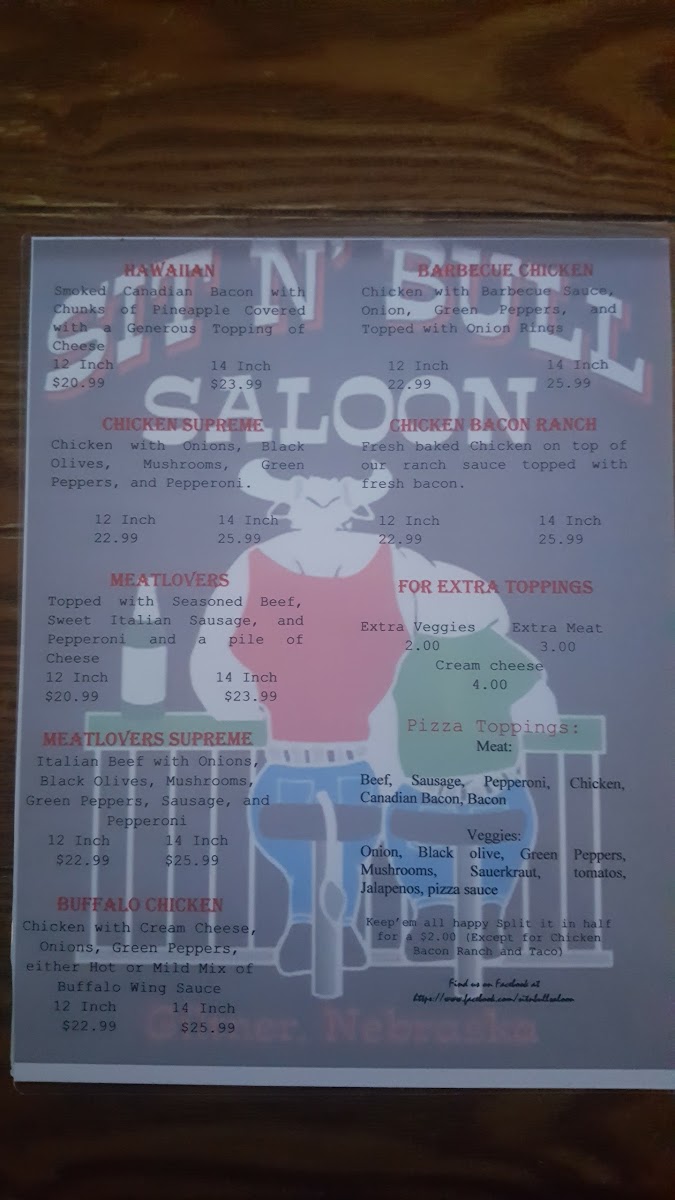 SIT N' BULL
SALOON
HAWAIIAN
Smoked Canadian Bacon with
Chunks of Pineapple Covered
with a Generous Topping of
Cheese
12 Inch 14 Inch
$20.99 $23.99
CHICKEN SUPREME
Chicken with Onions, Black
Olives, Mushrooms, Green
Peppers, and Pepperoni.
12 Inch 14 Inch
22.99 25.99
MEATLOVERS
Topped with Seasoned Beef,
Sweet Italian Sausage, and
Pepperoni and a pile of
Cheese
12 Inch 14 Inch
$20.99 $23.99
MEATLOVERS SUPREME
Italian Beef with Onions,
Black Olives, Mushrooms,
Green Peppers, Sausage, and
Pepperoni
12 Inch 14 Inch
$22.99 $25.99
BUFFALO CHICKEN
Chicken with Cream Cheese,
Onions, Green Peppers,
either Hot or Mild Mix of
Buffalo Wing Sauce
12 Inch 14 Inch
$22.99 $25.99
BARBECUE CHICKEN
Chicken with Barbecue Sauce,
Onion, Green Peppers, and
Topped with Onion Rings
12 Inch 14 Inch
22.99 25.99
CHICKEN BACON RANCH
Fresh baked Chicken on top of
our ranch sauce topped with
fresh bacon.
12 Inch 14 Inch
22.99 25.99
FOR EXTRA TOPPINGS
Extra Veggies Extra Meat
2.00 3.00
Cream cheese
4.00
Pizza Toppings:
Meat:
Beef, Sausage, Pepperoni, Chicken,
Canadian Bacon, Bacon
Veggies:
Onion, Black olive, Green Peppers,
Mushrooms, Sauerkraut, tomatos,
Jalapenos, pizza sauce
Keep'em all happy Split it in half
for a $2.00 (Except for Chicken
Bacon Ranch and Taco)
Find us on Facebook at
https://www.facebook.com/sitnbullsaloon
Nebraska